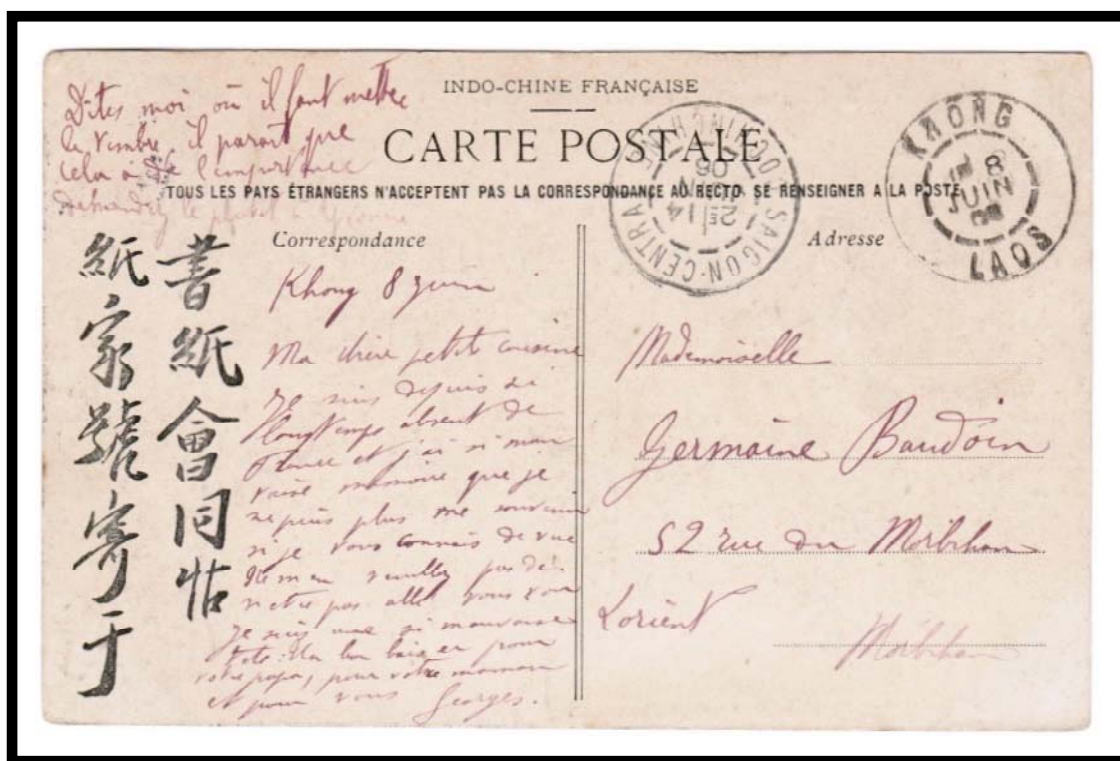 Dites moi où il faut mettre
le timbre, il parait que
cela a de l'importance
Demandez le
INDO-CHINE FRANÇAISE
CARTE POSTALE
TOUS LES PAYS ÉTRANGERS N'ACCEPTENT PAS LA CORRESPONDANCE AU RECTO SE RENSEIGNER A LA POSTE
SAIGON-CENTRAL COCHINCHINE
2E/14
06
KHONG
8
JUIN
LAOS
書紙會同帖
紙家號寄于
Correspondance
Khong 8 juin
Ma chère petite cousine
Je suis depuis si
longtemps absent de
France et j'ai si mau
vaise mémoire que je
ne puis plus me souvenir
si je vous connais de vue
Ne m'en veuillez pas de
n'être pas allé vous voir
je suis une si mauvaise
tête. Un bon baiser pour
votre papa, pour votre maman
et pour vous Georges.
Adresse
Mademoiselle
Germaine Baudoin
52 rue du Morbihan
Lorient
Morbihan